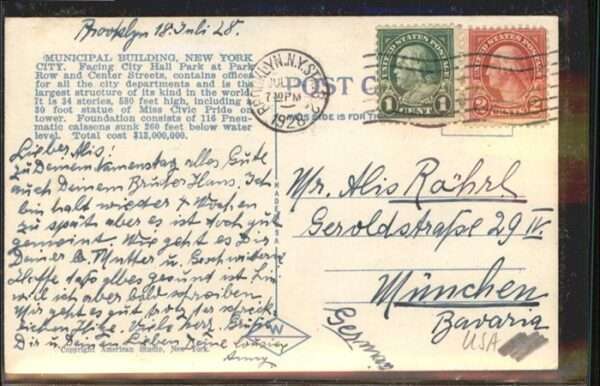 Brooklyn 18. Juli 28.
MUNICIPAL BUILDING, NEW YORK
CITY. Facing City Hall Park at Park
Row and Center Streets, contains offices
for all the city departments and is the
largest structure of its kind in the world.
It is 34 stories, 580 feet high, including a
30 foot statue of Miss Civic Pride on
tower. Foundation consists of 116 Pneu-
matic caissons sunk 260 feet below water
level. Total cost $12,000,000.
Lieber Alis!
Zu Deinem Namenstag alles Gute
auch Deinem Bruder Hans. Ich
bin halt wieder Wochen
zu spät aber es ist doch gut
gemeint. Wie geht es Dir
Deiner lb. Mutter u. Geschwistern
Hoffe daß alles gesund ist
will ich aber bald schreiben
Mir geht es gut trotz der schreck-
lichen Hitze. Viele herz. Grüße
Dir u. Deinen Lieben Deine
Anny
Copyright American Studio, New York.
POST C
THIS SIDE IS FOR
BROOKLYN, N.Y.
JUL
7 PM
1928
UNITED STATES POSTAGE
1 CENT 1
UNITED STATES POSTAGE
2 CENTS 2
Mr. Alis Röhrl
Geroldstraße 29 IV
München
Bavaria
Germany
USA
W